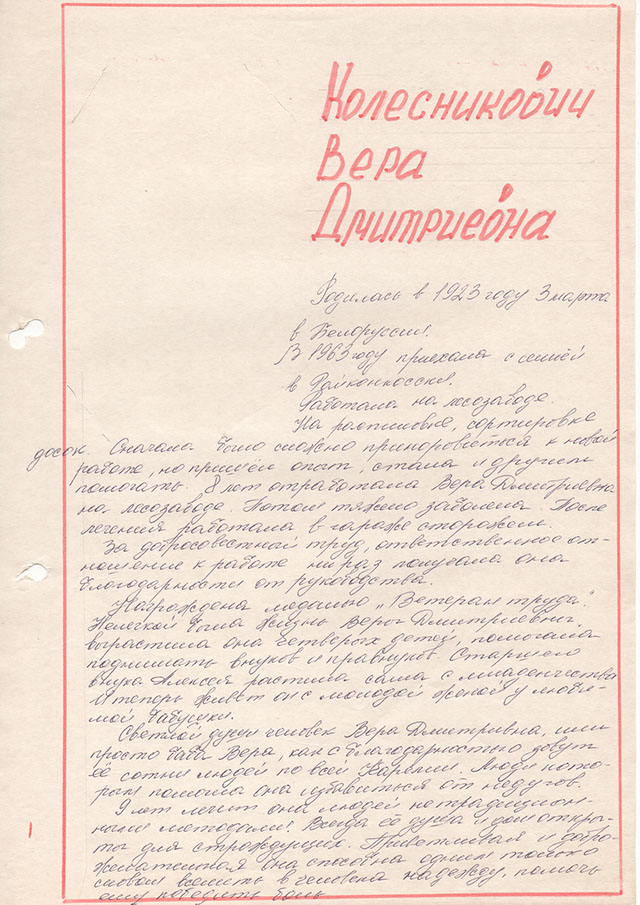 Колесникович
Вера
Дмитриевна
Родилась в 1923 году 3 марта
в Белоруссии.
В 1963 году приехала с семьей
в Райконкоски.
Работала на лесозаводе.
На распиловке, сортировке
досок. Сначала было сложно приноровиться к новой
работе, но пришёл опыт, стала и другим
помогать. 8 лет отработала Вера Дмитриевна
на лесозаводе. Потом тяжело заболела. После
лечения работала в гараже сторожем.
За добросовестный труд, ответственное от-
ношение к работе не раз получала она
благодарности от руководства.
Награждена медалью „Ветеран труда".
Нелегкой была жизнь Веры Дмитриевны.
вырастила она четверых детей, помогала
поднимать внуков и правнуков. Старшего
внука Алексея растила сама с младенчества
И теперь живет он с молодой женой у люби-
мой бабушки.
Светлой души человек Вера Дмитривна, или
просто баба Вера, как с благодарностью зовут
её сотни людей по всей Карелии. Люди кото-
рым помогла она избавиться от недугов.
9 лет лечит она людей нетрадицион-
ными методами. Всегда её душа и дом откры-
ты для страждущих. Приветливая и добро-
желательная она способна одним только
словом вселить в человека надежду, помочь
ему победить боль